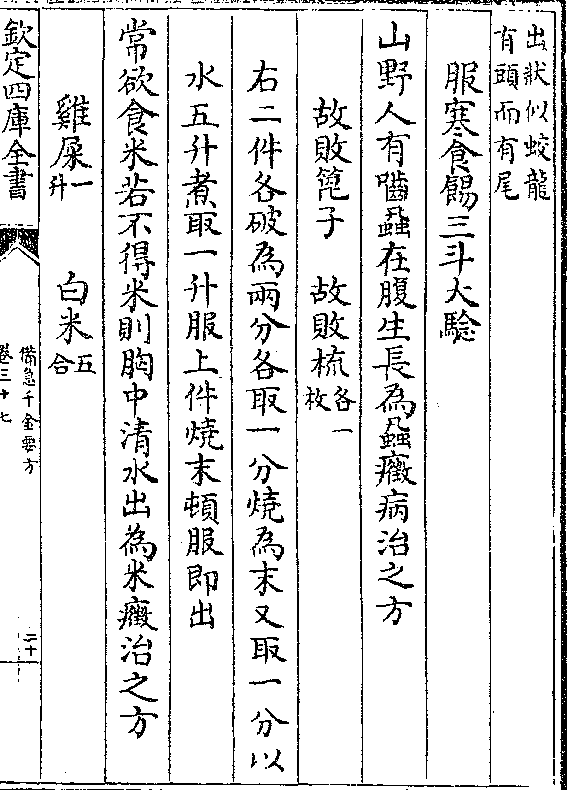 出狀似蛟龍
有頭而有尾
服寒食餳三斗大驗
山野人有嚙蝨在腹生長為蝨癥病治之方
故敗篦子　故敗梳各一枚
右二件各破為兩分各取一分燒為末又取一分以
水五升煮取一升服上件燒末頓服即出
常欲食米若不得米則胸中清水出為米癥治之方
雞屎一升　白米五合
欽定四庫全書
備急千金要方
卷三十七
二十